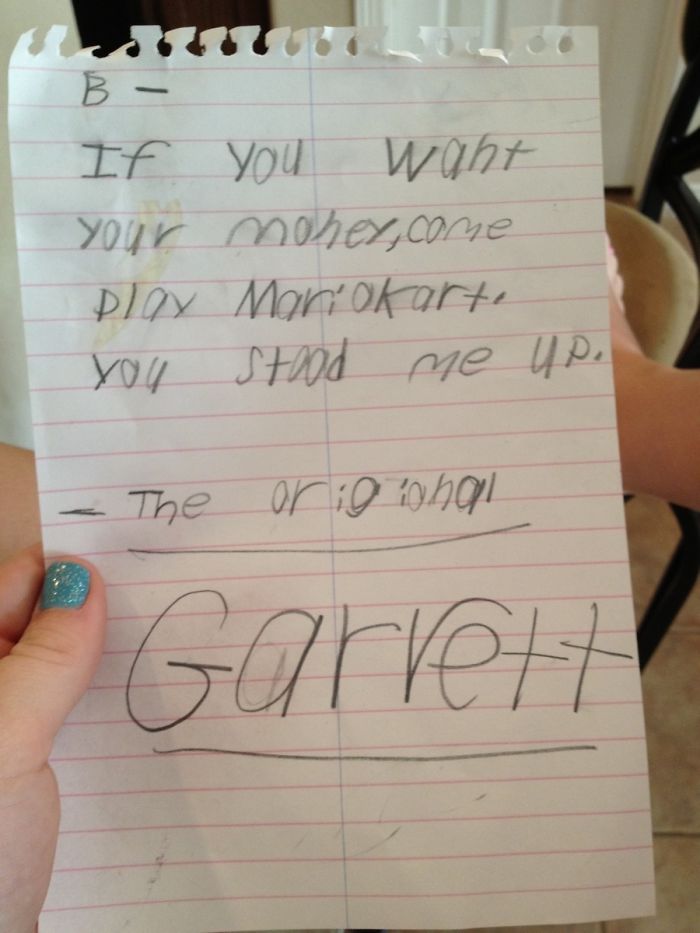 B -
If you want
your money, come
play Mariokart.
You stood me up.
- The origional
Garrett